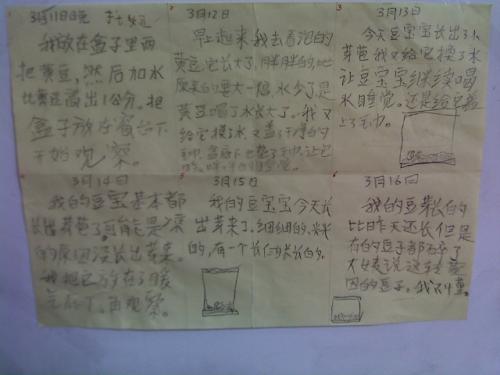 3月11日
我放在盒子里面
把黄豆,然后加水
比黄豆高出1公分。把
盒子放在窗台下
开始观察。
3月12日
早上起来我去看泡的
黄豆,它长大了,胖胖的,比
原来的要大一倍,水少了是
黄豆喝了水长大了。我又
给它换了水又盖了
毛巾,下也垫了毛巾,让它
3月13日
今天豆宝宝长出了小
芽苞我又给它换了水
让豆宝宝继续喝
水睡觉。还是给它盖
上了毛巾。
3月14日
我的豆宝宝基本都
长出芽苞了,可能是
的原因没长出芽来。
我把它放在了暖
气底下,再观察。
3月15日
我的豆宝宝今天长
出芽来了,细细的,长长
的,有一个长长的。
3月16日
我的豆芽长的
比昨天还长但是
有的豆子都碎了
大姨说这是
因的豆子。我